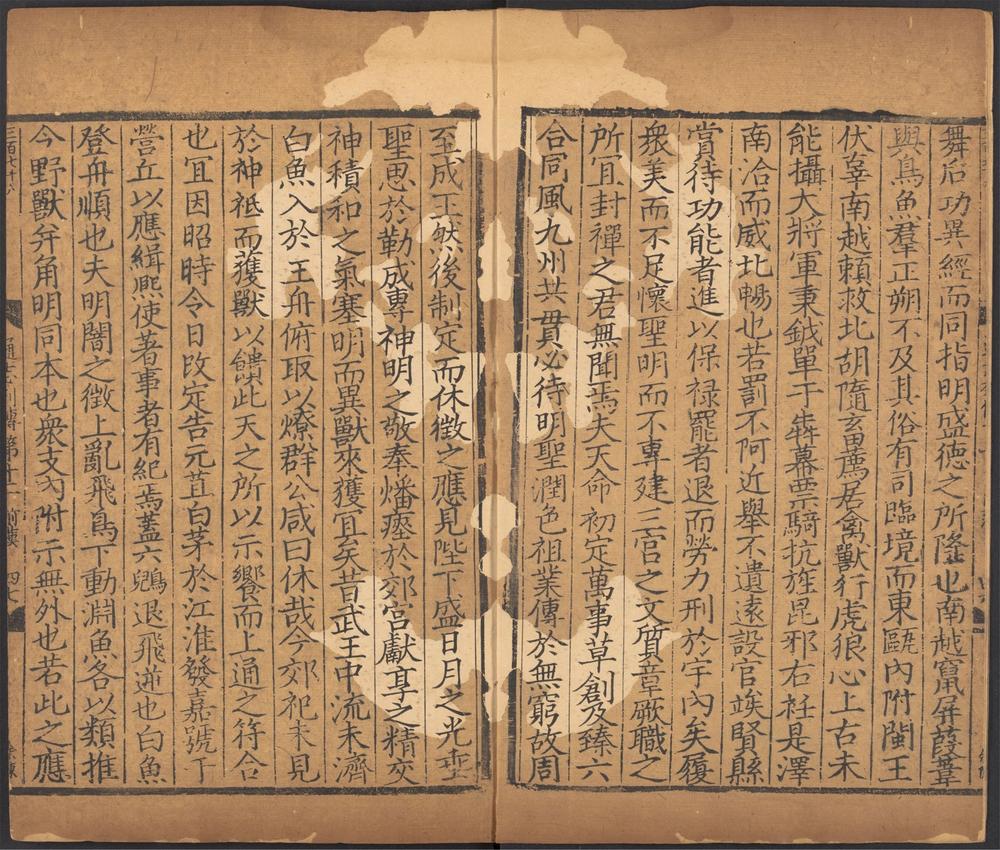 舞后功異經而同指明盛德之所隆也南越竄屏葭葦
與鳥魚羣正朔不及其俗有司臨境而東甌內附閩王
伏辜南越賴救北胡隨玄畜薦居禽獸行虎狼心上古未
能攝大將軍秉鉞單于犇幕票騎抗旌昆邪右衽是澤
南洽而威北暢也若罰不阿近舉不遺遠設官竢賢縣
賞待功能者進以保禄罷者退而勞力刑於宇內矣履
衆美而不足懷聖明而不專建三宫之文質章厥職之
所冝封禪之君無聞焉夫天命初定萬事草創及臻六
合同風九州共貫必待明聖潤色祖業傳於無窮故周
至成王然後制定而休徵之應見陛下盛日月之光垂
聖思於勤成專神明之敬奉燔瘞於郊宫獻享之精交
神積和之氣塞明而異獸來獲冝矣昔武王中流未濟
白魚入於王舟俯取以燎群公咸曰休哉今郊祀未見
於神祇而獲獸以饋此天之所以示饗而上通之符合
也冝因昭時令日改定告元苴白茅於江淮發嘉號于
營丘以應緝熈使著事者有紀焉蓋六鶂退飛逆也白魚
登舟順也夫明闇之徵上亂飛鳥下動淵魚各以類推
今野獸并角明同本也衆支內附示無外也若此之應
三百七十六
通志列傳第十一 前漢 四七